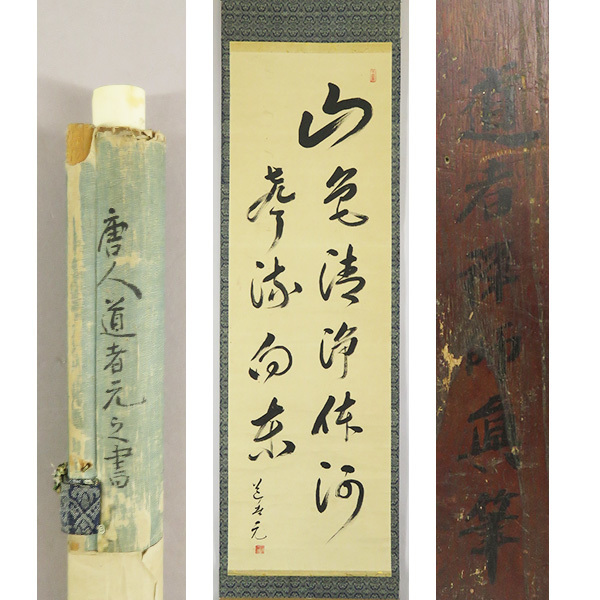 唐人道者元之書
山色清淨体河
聲流向東
道者元
道者禪師眞筆